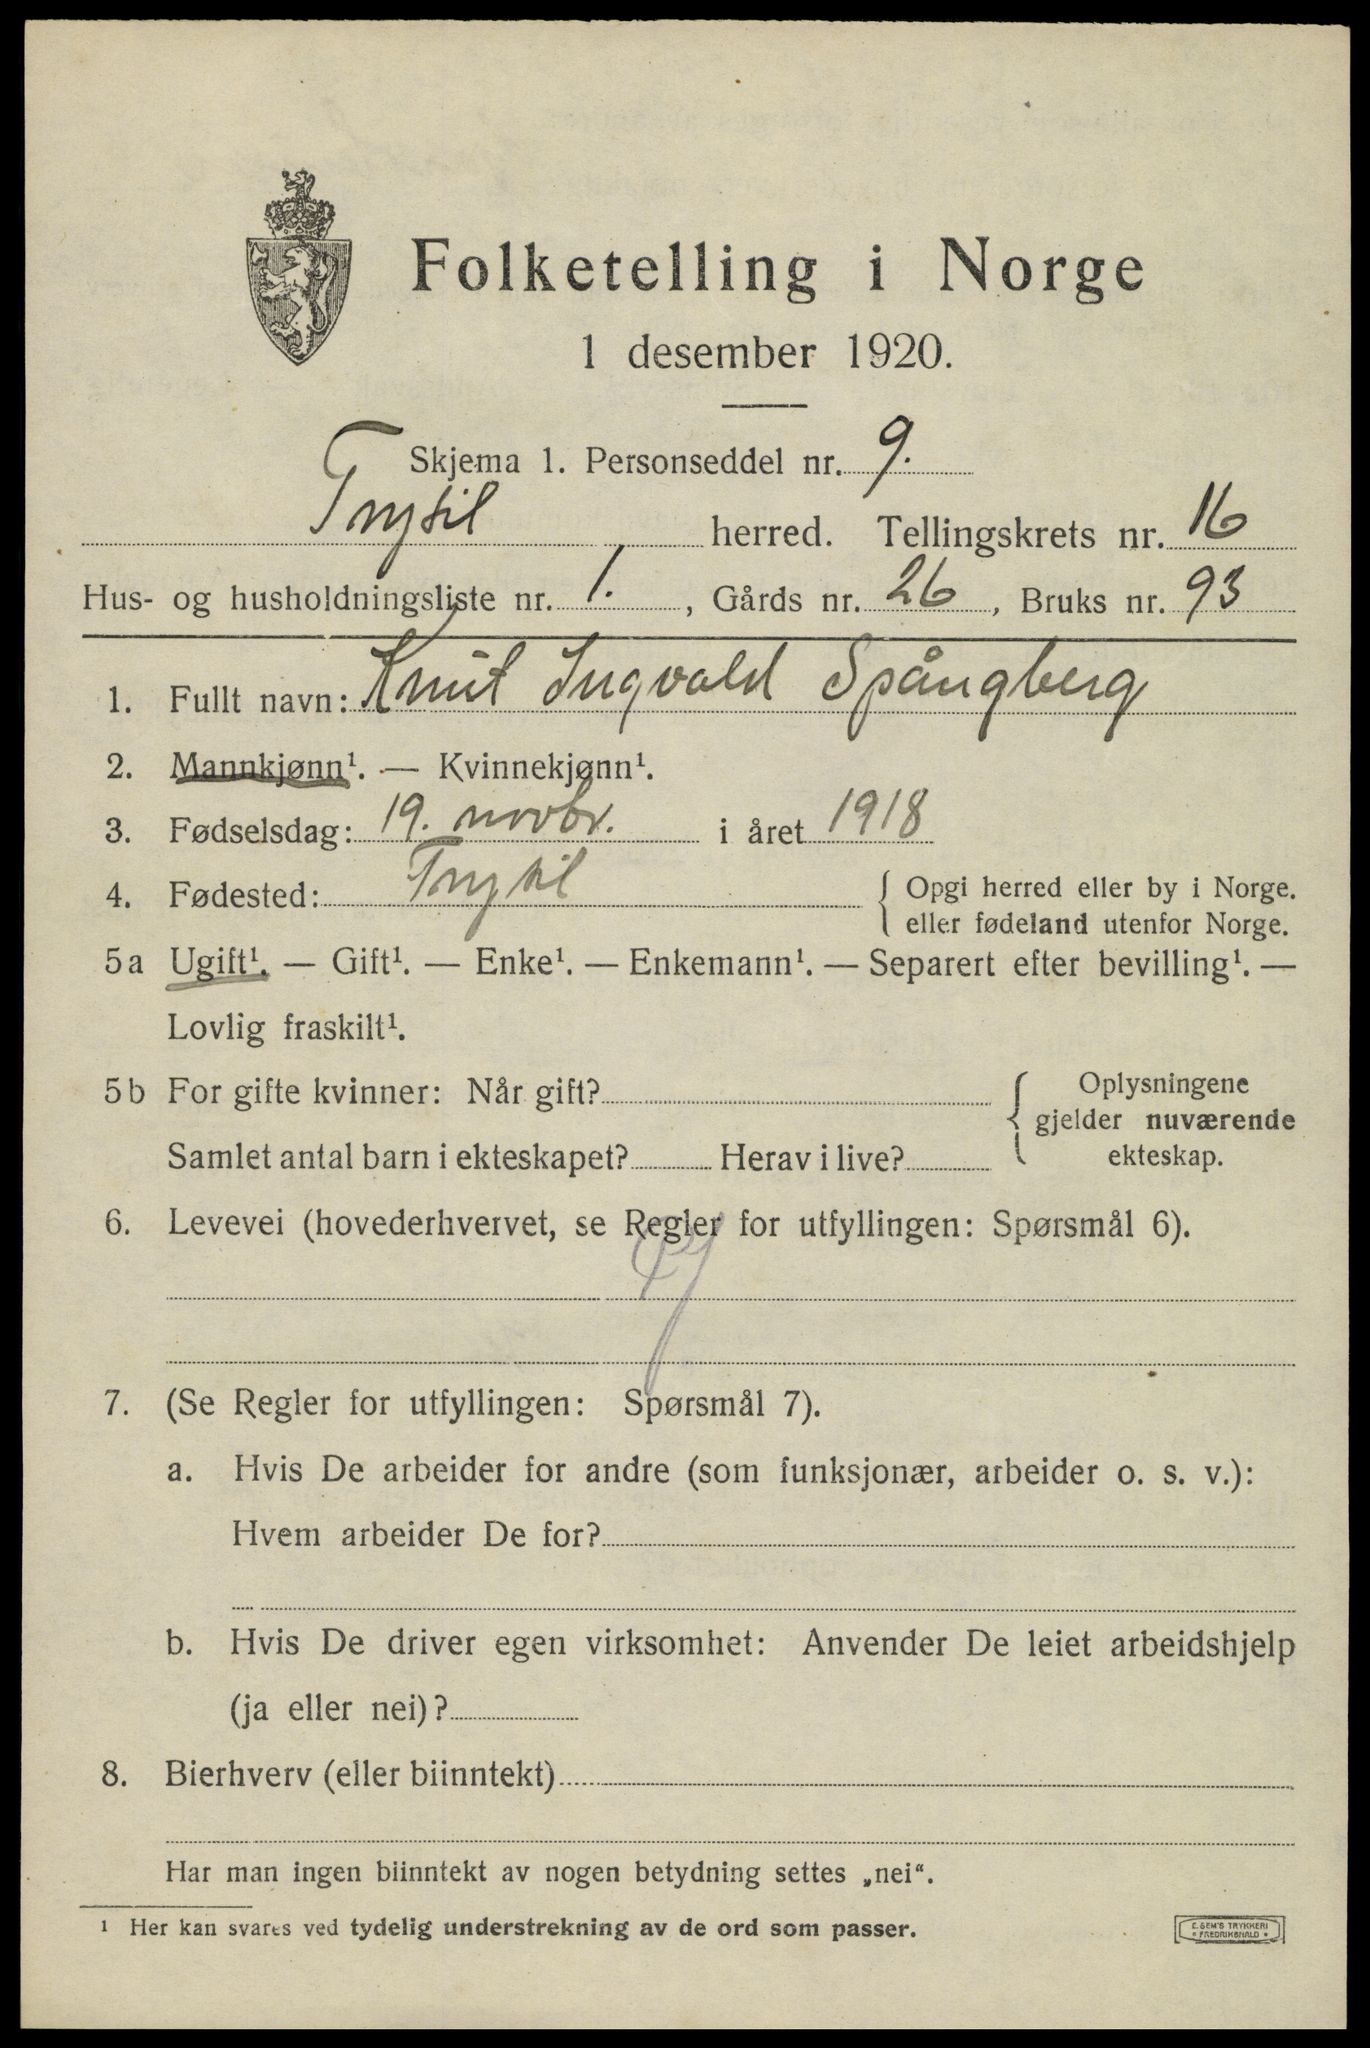 Folketelling i Norge
1 desember 1920.
Skjema 1. Personseddel nr. 9.
Trysil herred. Tellingskrets nr. 16
Hus- og husholdningsliste nr. 1. , Gårds nr. 26 , Bruks nr. 93
1. Fullt navn: Knut Ingvald Spångberg
2. Mannkjønn¹. — Kvinnekjønn¹.
3. Fødselsdag: 19. novbr. i året 1918
4. Fødested: Trysil { Opgi herred eller by i Norge.
eller fødeland utenfor Norge.
5a Ugift¹. — Gift¹. — Enke¹. — Enkemann¹. — Separert efter bevilling¹. —
Lovlig fraskilt¹.
5b For gifte kvinner: Når gift? { Oplysningene
gjelder nuværende
Samlet antal barn i ekteskapet? Herav i live? ekteskap.
6. Levevei (hovederhvervet, se Regler for utfyllingen: Spørsmål 6).
7. (Se Regler for utfyllingen: Spørsmål 7).
a. Hvis De arbeider for andre (som funksjonær, arbeider o. s. v.):
Hvem arbeider De for?
b. Hvis De driver egen virksomhet: Anvender De leiet arbeidshjelp
(ja eller nei)?
8. Bierhverv (eller biinntekt)
Har man ingen biinntekt av nogen betydning settes „nei“.
¹ Her kan svares ved tydelig understrekning av de ord som passer.
E. SEM'S TRYKKERI
FREDRIKSHALD